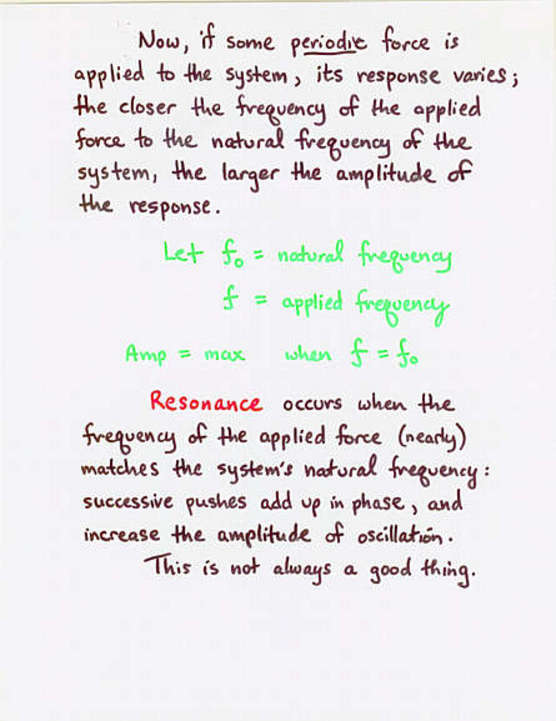 Now, if some periodic force is
applied to the system, its response varies;
the closer the frequency of the applied
force to the natural frequency of the
system, the larger the amplitude of
the response.
Let f₀ = natural frequency
f = applied frequency
Amp = max when f = f₀
Resonance occurs when the
frequency of the applied force (nearly)
matches the system's natural frequency:
successive pushes add up in phase, and
increase the amplitude of oscillation.
This is not always a good thing.